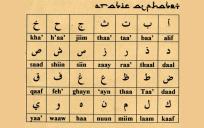 arabic alphabet
خ ح ج ث ت ب أ
kha' h'aa' jiim thaa' taa' baa' alif
ص ش س ز ر ذ د
saad shiin siin zaay raa' thaal daal
ق ف غ ع ظ ط ض
qaaf feh' ghayn 'ayn thaa Taa' daad
ي و ه ن م ل ك
yaa' waaw haa nuun miim laam kaaf